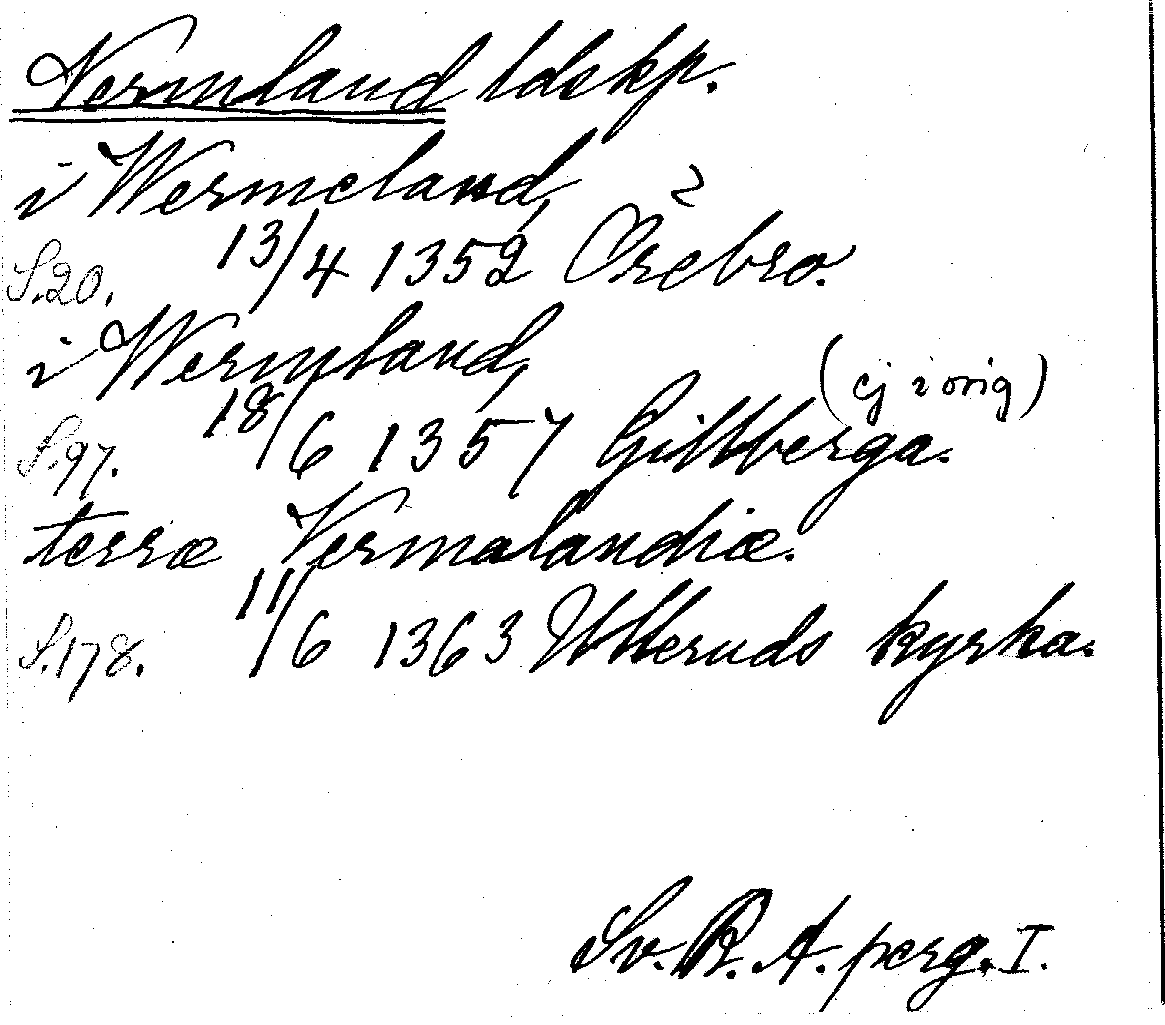 Vermland ldskp.
i Wermeland,
S.20. 13/4 1352 Örebro.
i Wermland,
(ej i orig)
S.97. 18/6 1357 Gillberga.
terræ Vermalandiæ.
S.178. 11/6 1363 Ulleruds kyrka.
Sv. R. A. perg. I.